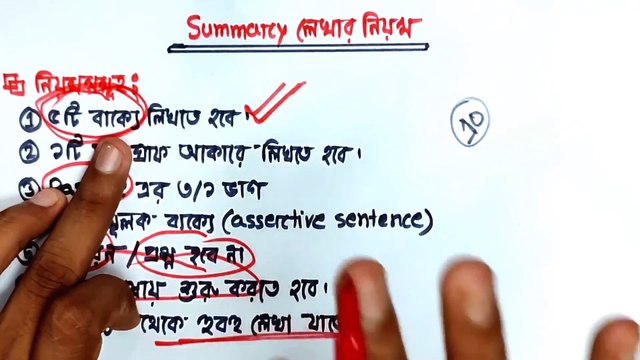 Summary লেখার নিয়ম
নিয়মসমূহ :
① ৫টি বাক্যে লিখতে হবে।
১০
② ১টি আকারে লিখতে হবে।
③ এর ৩/১ ভাগ
বাক্যে (assertive sentence)
/ প্রশ্ন হবে না
শুরু করতে হবে।
থেকে হুবহু লেখা